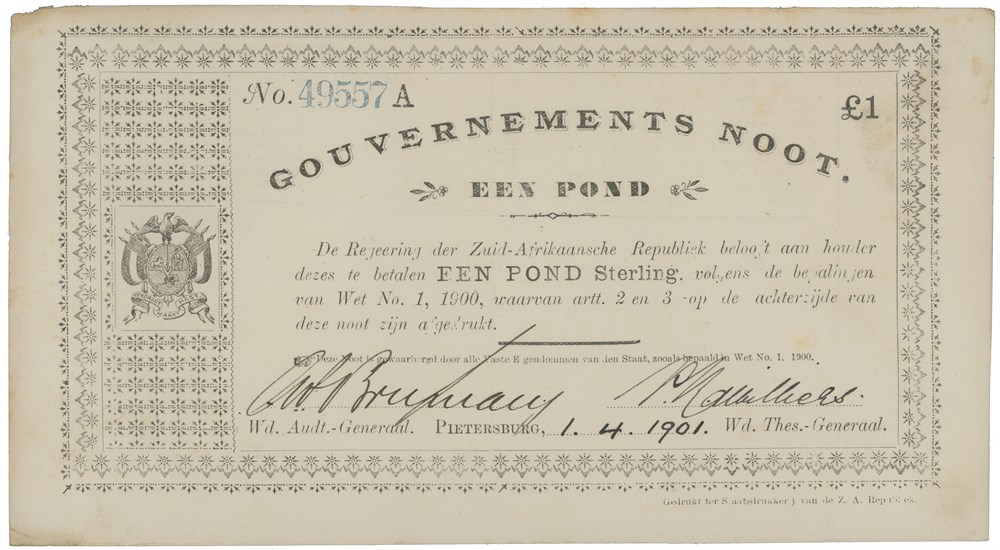 No. 49557 A
£1
GOUVERNEMENTS NOOT.
EEN POND
De Regeering der Zuid-Afrikaansche Republiek belooft aan houder
dezes te betalen EEN POND Sterling. volgens de bepalingen
van Wet No. 1, 1900, waarvan artt. 2 en 3 op de achterzijde van
deze noot zijn afgedrukt.
Deze Noot is gewaarborgd door alle Vaste Eigendommen van den Staat, zooals bepaald in Wet No. 1. 1900.
Wd. Audt.-Generaal. PIETERSBURG, 1. 4. 1901. Wd. Thes.-Generaal.
Gedrukt ter Staatsdrukkerij van de Z. A. Republiek.